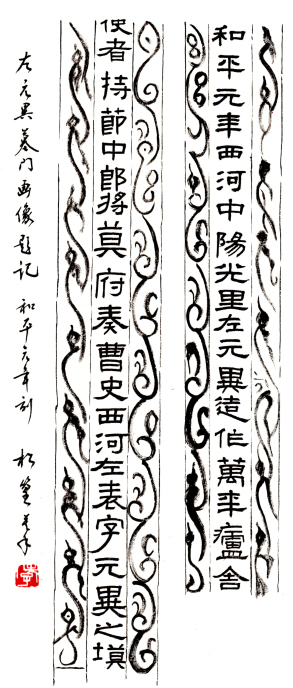 和平元年西河中陽光里左元異造作萬年廬舍
使者持節中郎將莫府奏曹史西河左表字元異之塻
左元異墓门画像题记 和平元年刻